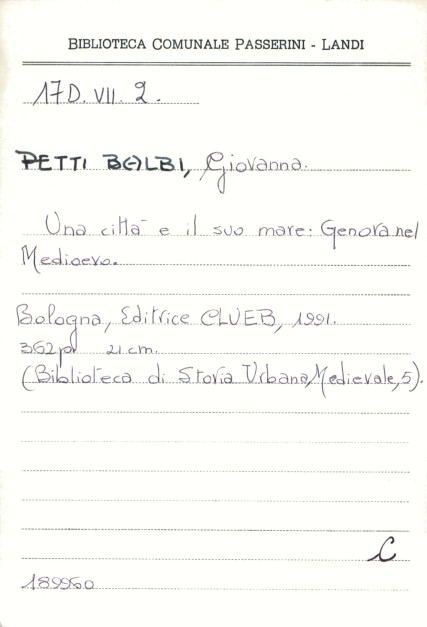 BIBLIOTECA COMUNALE PASSERINI - LANDI
17D. VII. 2.
PETTI BALBI, Giovanna.
Una città e il suo mare: Genova nel
Medioevo.
Bologna, Editrice CLUEB, 1991.
362 p. 21 cm.
(Biblioteca di Storia Urbana Medievale, 5).
C
189960